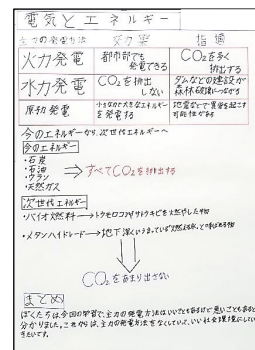 電気とエネルギー
主力の発電方法 効果 指摘
火力発電 都市部でも発電できる CO₂を多く排出する
水力発電 CO₂を排出しない ダムなどの建設が森林破壊につながる
原子力発電 小さなかで大きなエネルギーを発電する 地震などで事故を起こす可能性がある
今のエネルギーから次世代エネルギーへ
今のエネルギー
・石炭
・石油
・ウラン
・天然ガス
すべてCO₂を排出する
次世代エネルギー
・バイオ燃料→トウモロコシやサトウキビを燃やした物
・メタンハイドレード→地下深くうまっている
CO₂をあまり出さない
まとめ
ぼくたちは今回の学習で、主力の発電方法はいいこともあるけど悪いこともあると
分かりました。これからは、主力の発電方法をなくしていって、いい社会環境にしてい
きたいです。